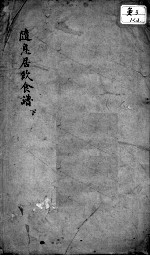 隨息居飲食譜
下